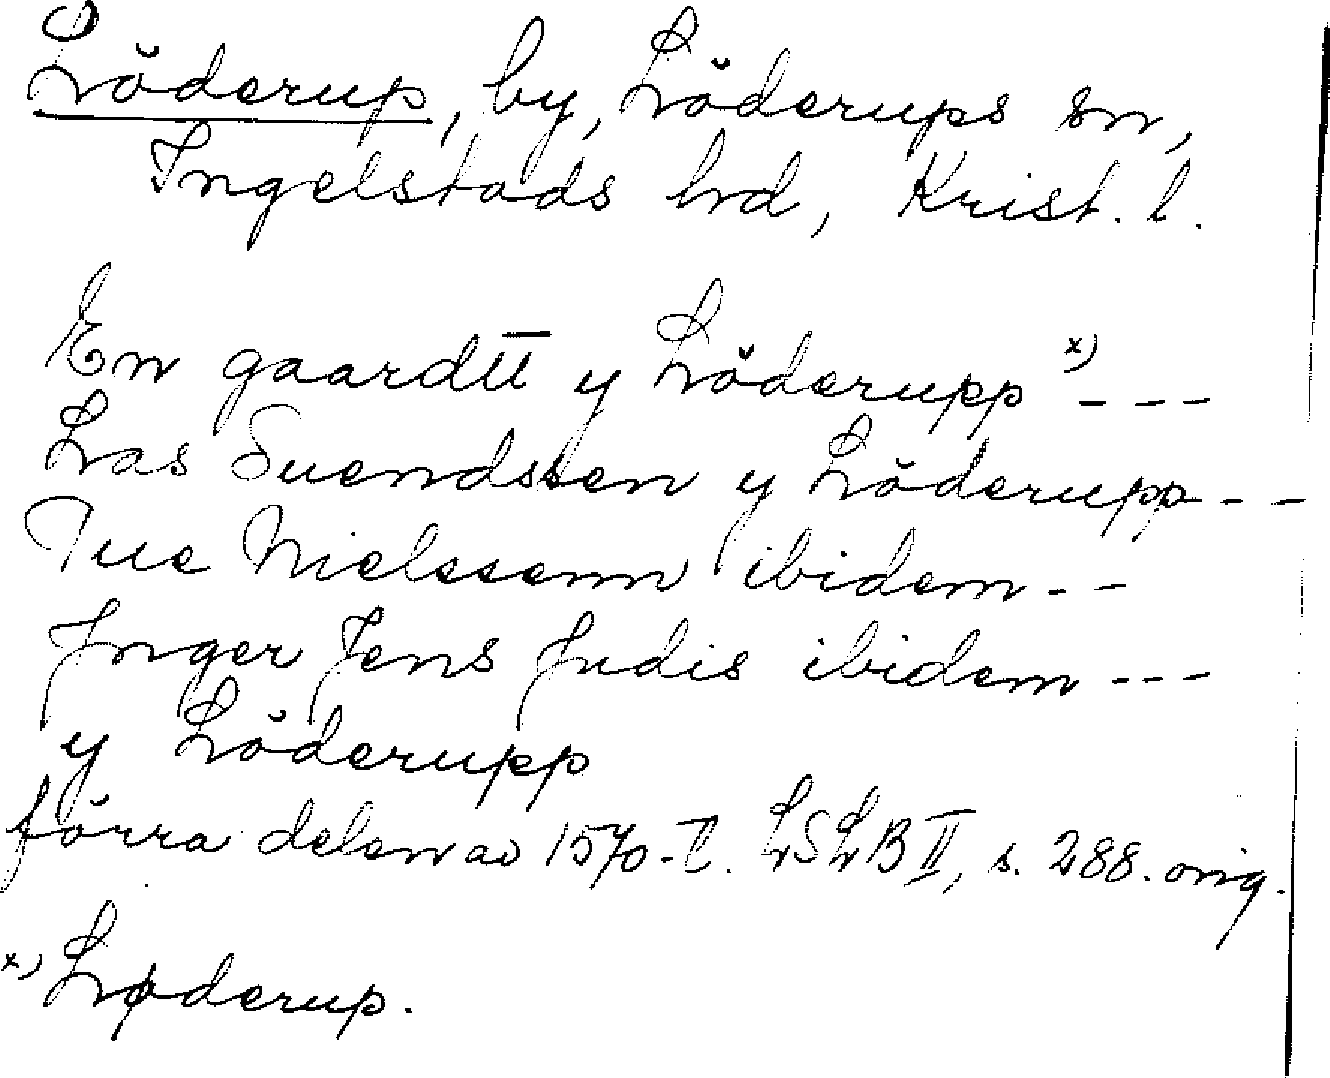 Löderup, by, Löderups sn,
Ingelstads hrd, Krist. l.
En gaardtt y Löderupp x) ---
Las Suendssen y Löderupp --
Tue Nielssenn ibidem --
Jnger Jens Judis ibidem ---
y Löderupp
förra delen av 1570-t. LSLB II, s. 288. orig.
x) Løderup.